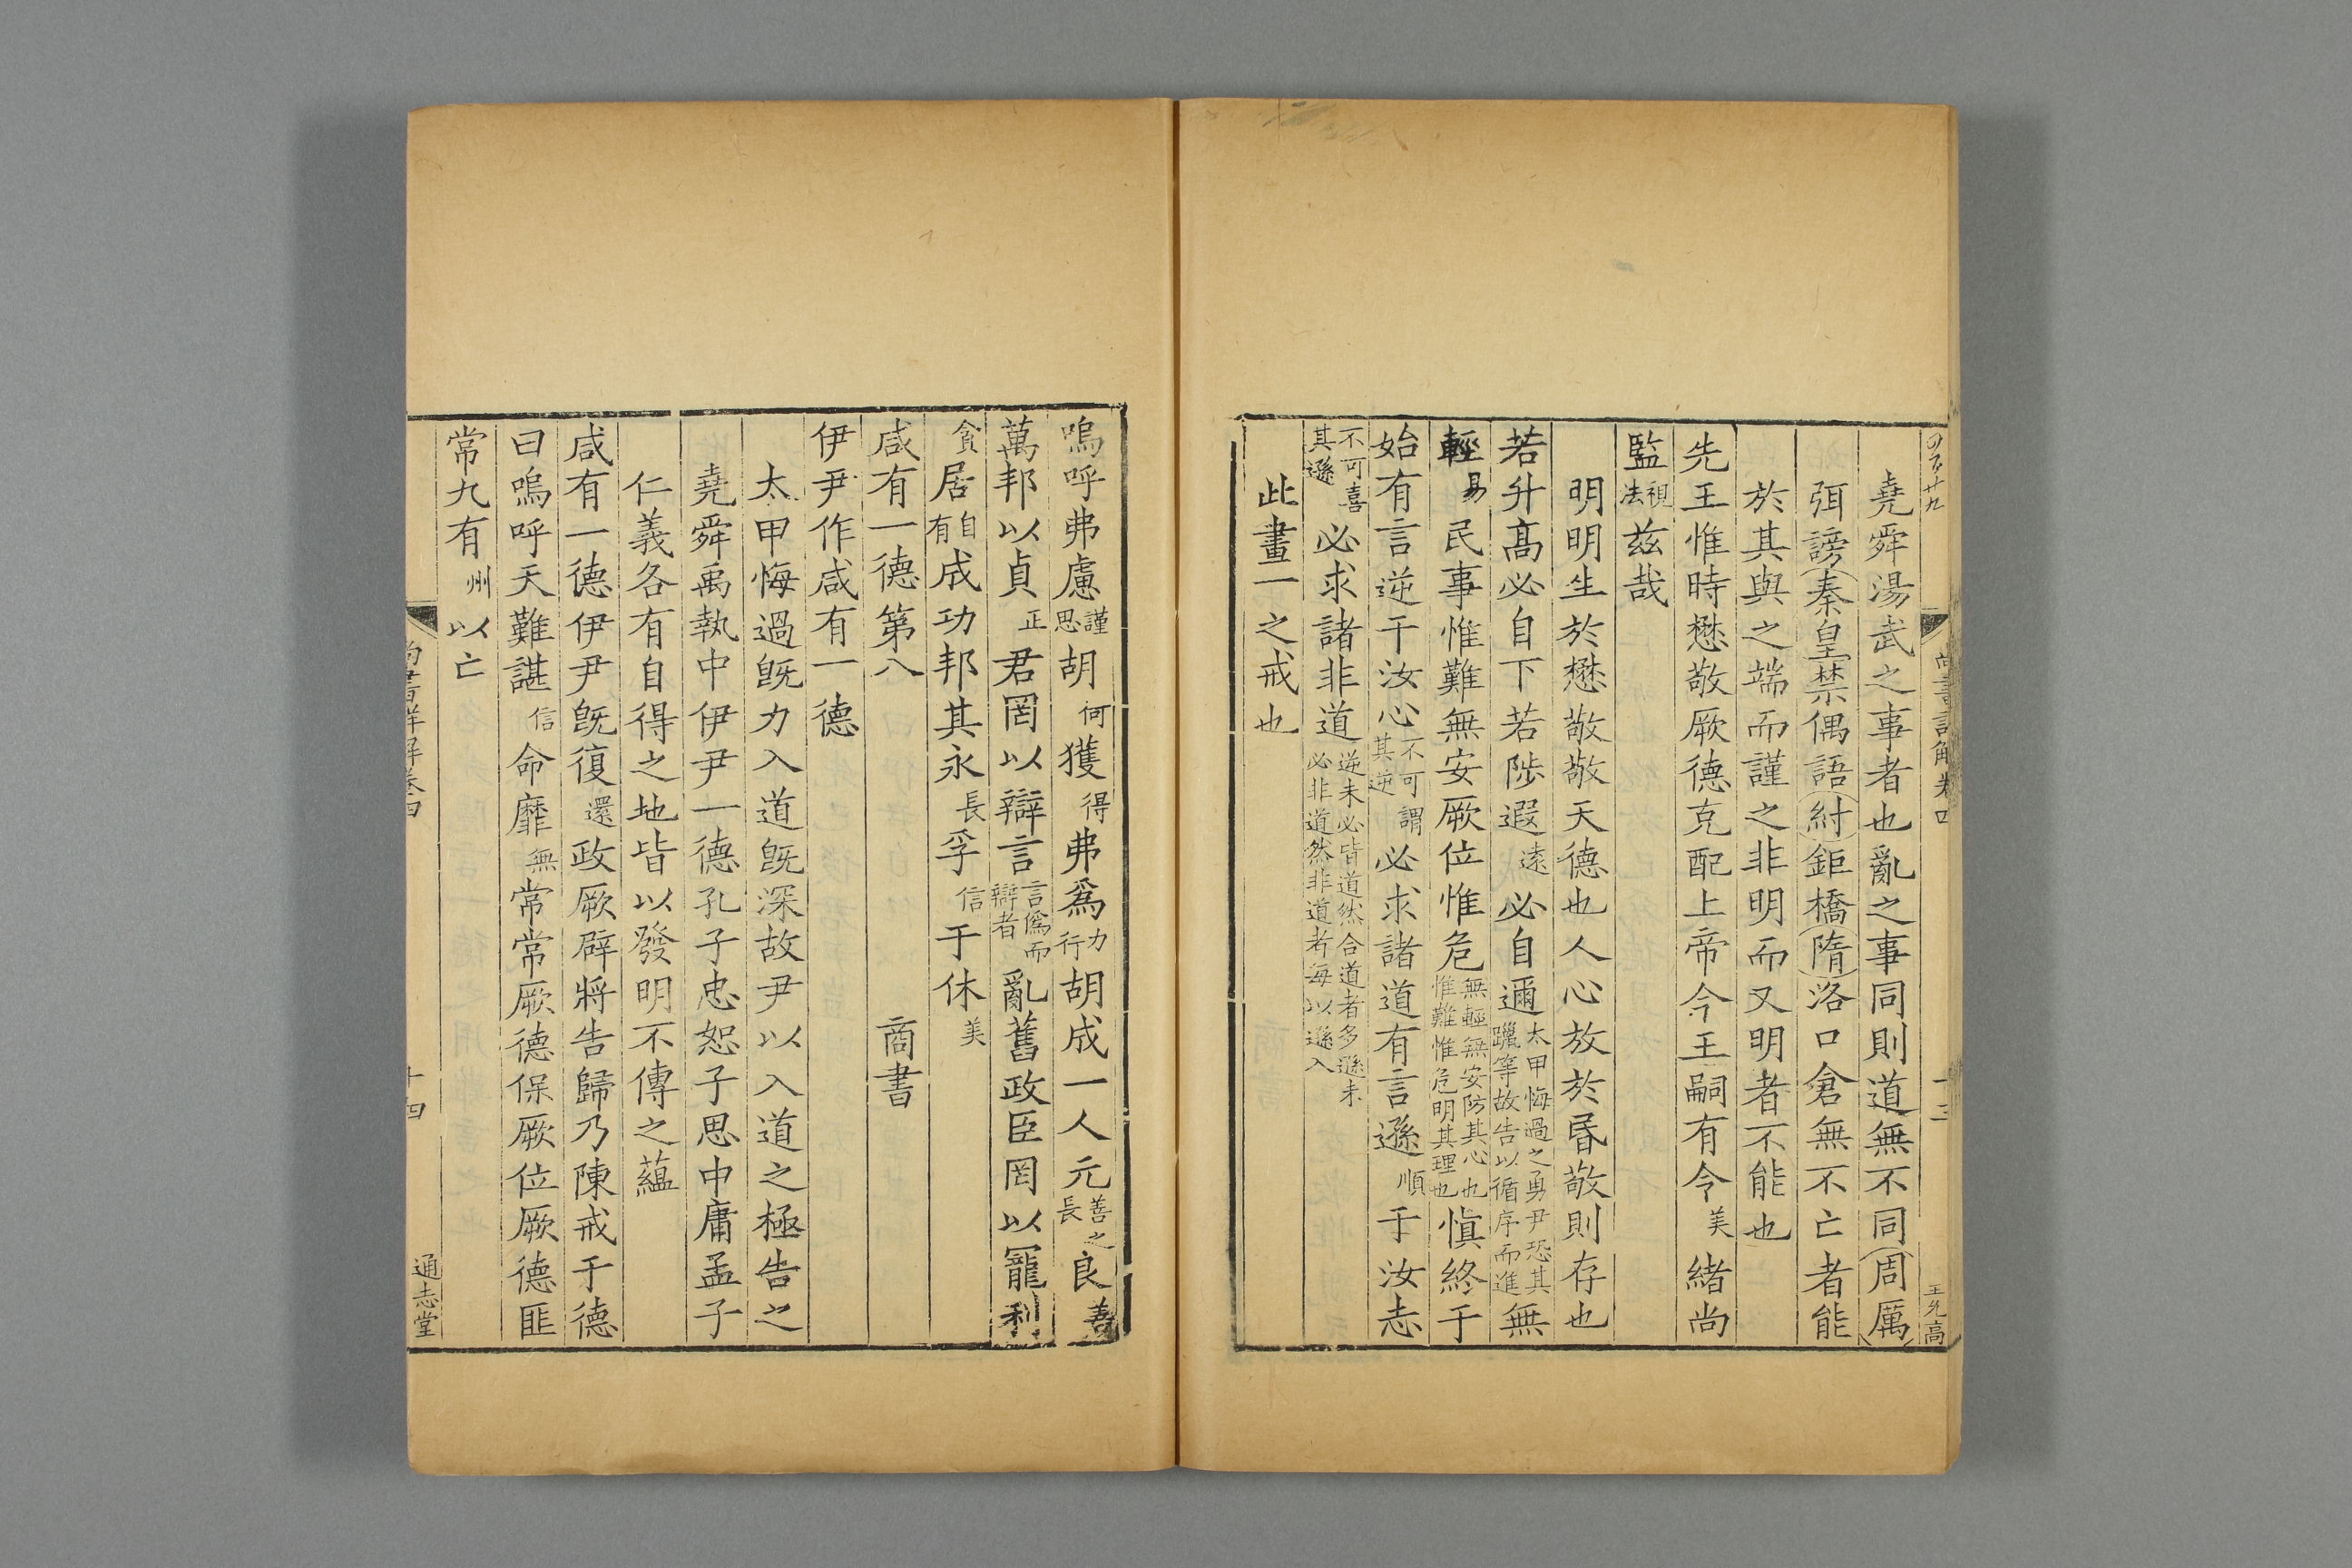 堯舜湯武之事者也亂之事同則道無不同周厲
弭謗秦皇禁偶語紂鉅橋隋洛口倉無不亡者能
於其與之端而謹之非明而又明者不能也
先王惟時懋敬厥德克配上帝今王嗣有令美緒尚
監視法兹哉
明明生於懋敬敬天德也人心放於昬敬則存也
若升高必自下若陟遐遠必自邇太甲悔過之勇尹恐其躐等故告以循序而進無
輕易民事惟難無安厥位惟危無輕無安防其心也惟難惟危明其理也慎終于
始有言逆于汝心不可謂其逆必求諸道有言遜順于汝志
不可喜其遜必求諸非道逆未必皆道然合道者多遜未必非道然非道者每以遜入
此畫一之戒也
嗚呼弗慮謹思胡何獲得弗爲力行胡成一人元善之長良善
萬邦以貞正君罔以辯言言僞而辯者亂舊政臣罔以寵利
貪居自有成功邦其永長孚信于休美
咸有一德第八 商書
伊尹作咸有一德
太甲悔過旣力入道旣深故尹以入道之極告之
堯舜禹執中伊尹一德孔子忠恕子思中庸孟子
仁義各有自得之地皆以發明不傳之蘊
咸有一德伊尹旣復還政厥辟將告歸乃陳戒于德
曰嗚呼天難諶信命靡無常常厥德保厥位厥德匪
常九有州以亡
尚書詳解卷四 十四 通志堂